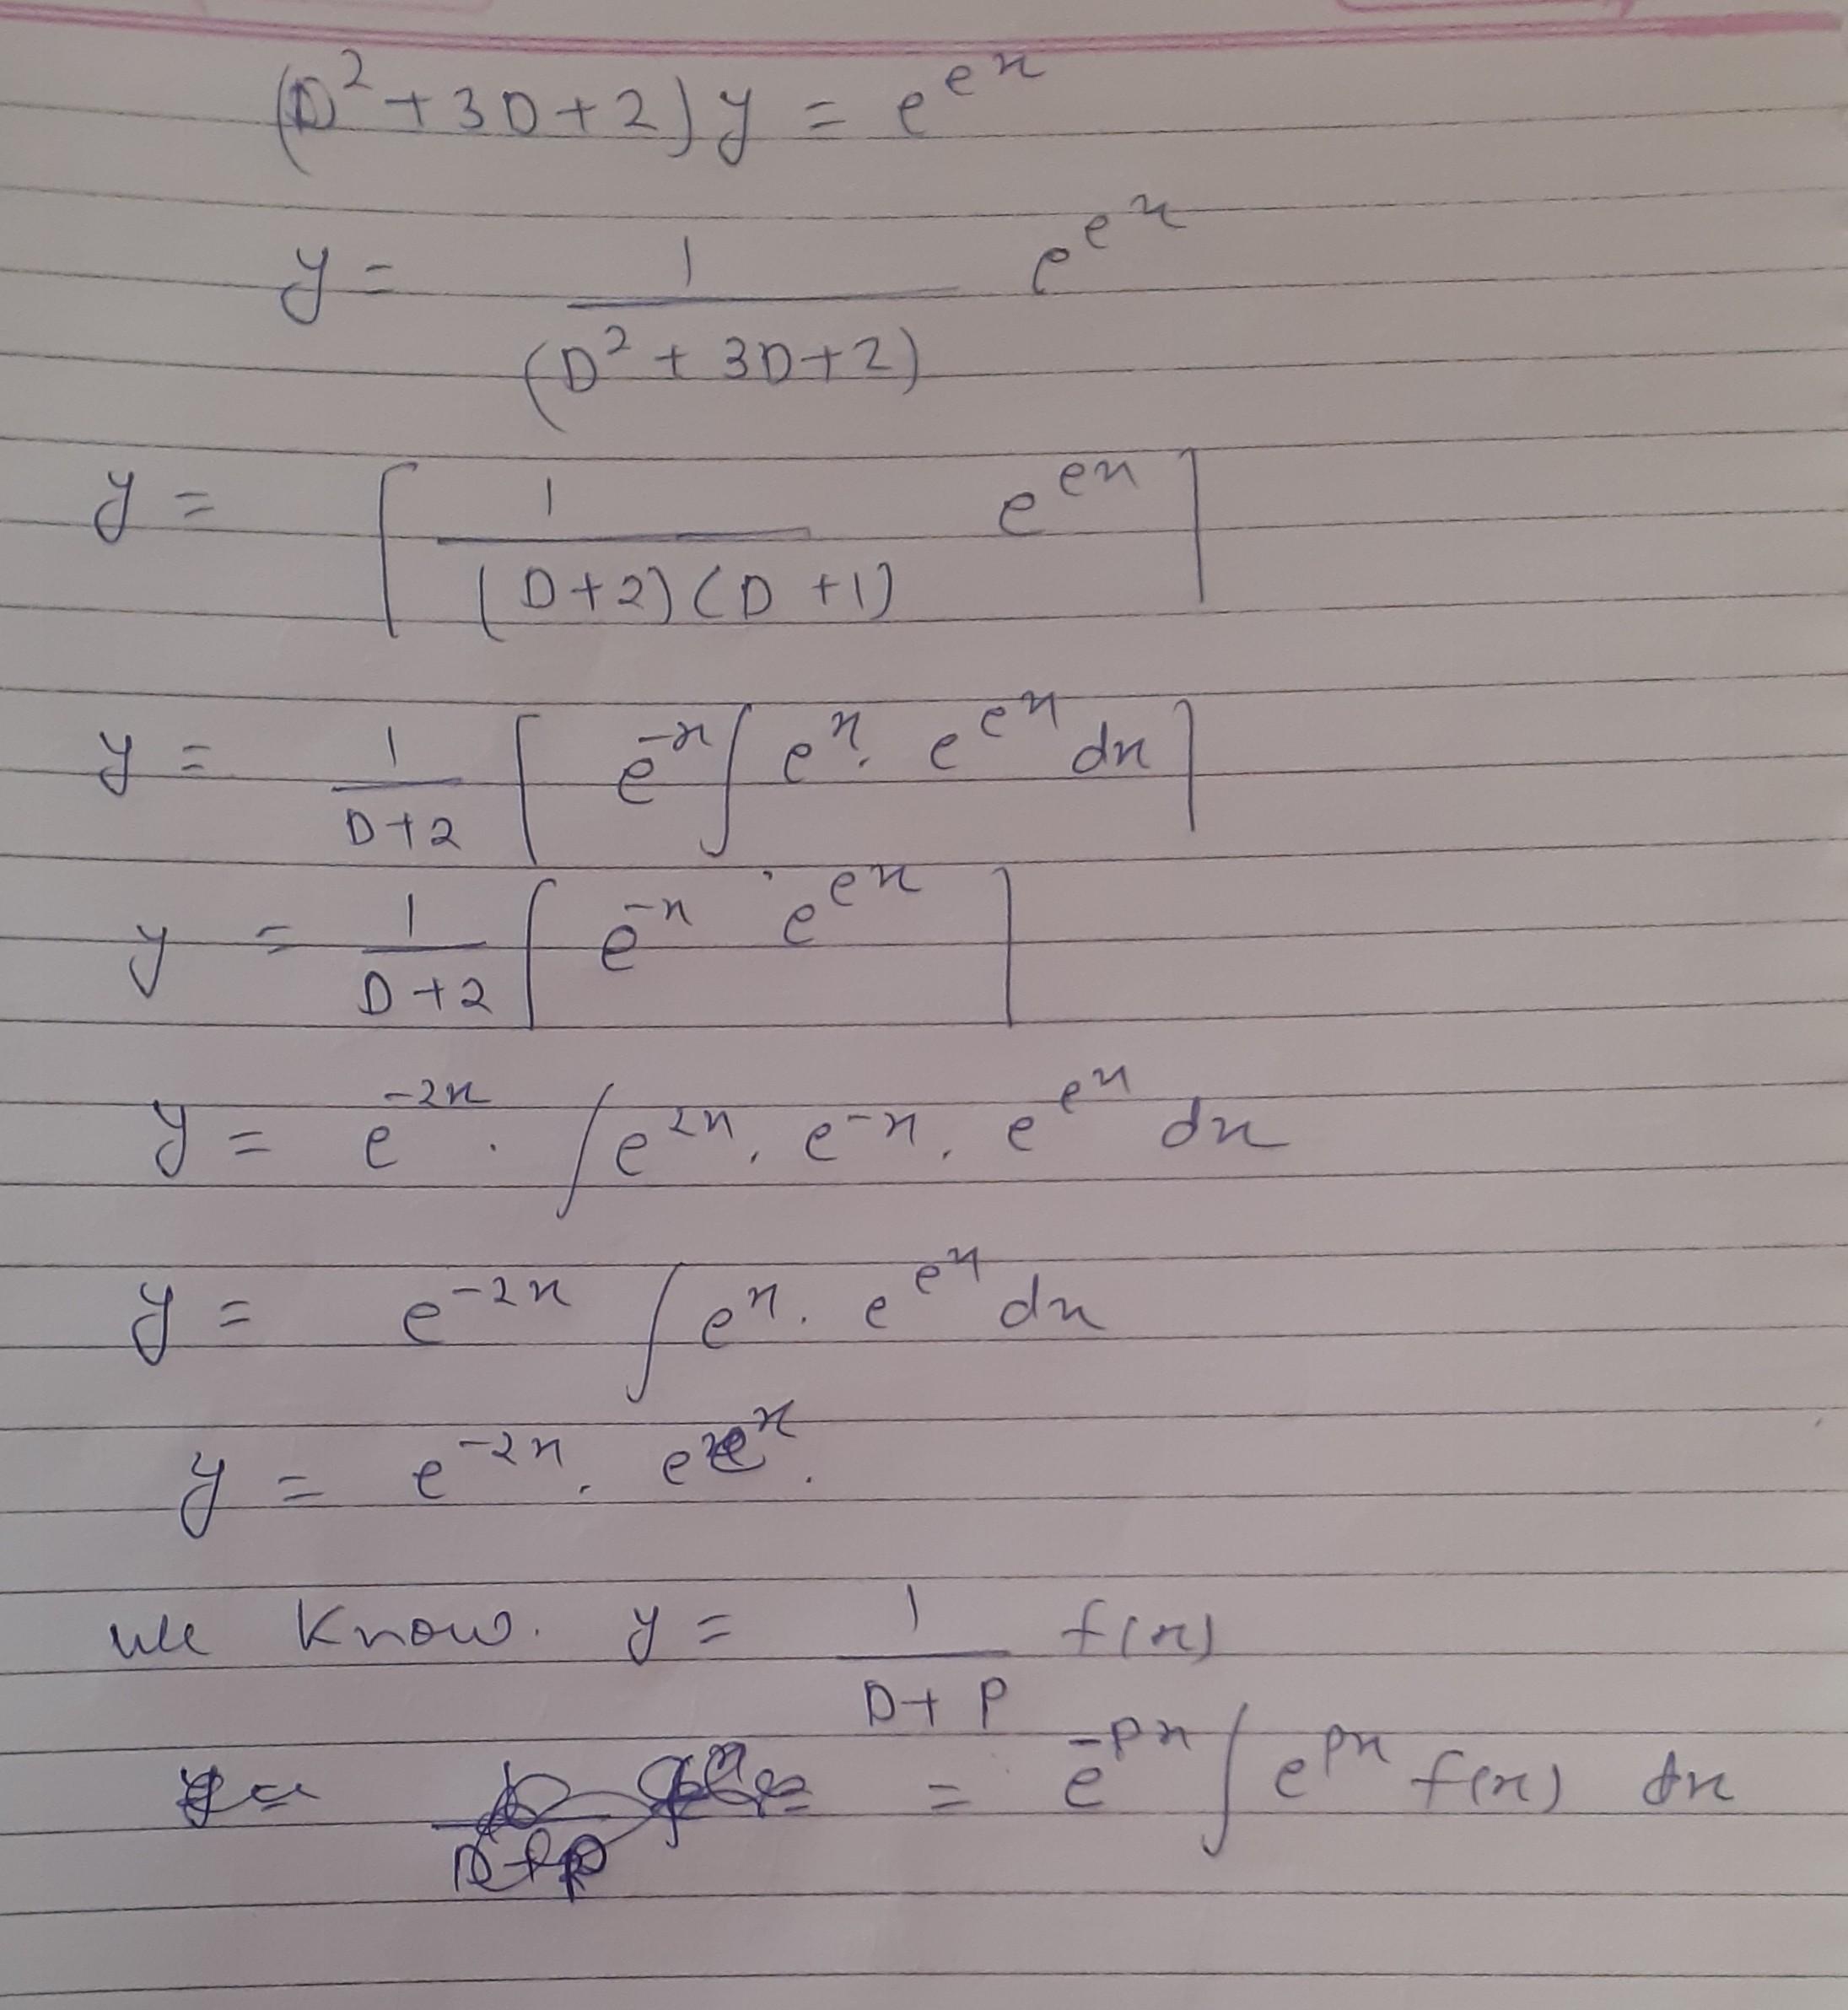 (D² + 3D + 2) y = e^{e^x}
y = 1/(D² + 3D + 2) e^{e^x}
y = [ 1/((D+2)(D+1)) e^{e^x} ]
y = 1/(D+2) [ e^{-x} ∫ e^x . e^{e^x} dx ]
y = 1/(D+2) [ e^{-x} e^{e^x} ]
y = e^{-2x} . ∫ e^{2x} . e^{-x} . e^{e^x} dx
y = e^{-2x} ∫ e^x . e^{e^x} dx
y = e^{-2x} . e^{e^x} .
we know. y = 1/(D+P) f(x)
= e^{-Px} ∫ e^{Px} f(x) dx